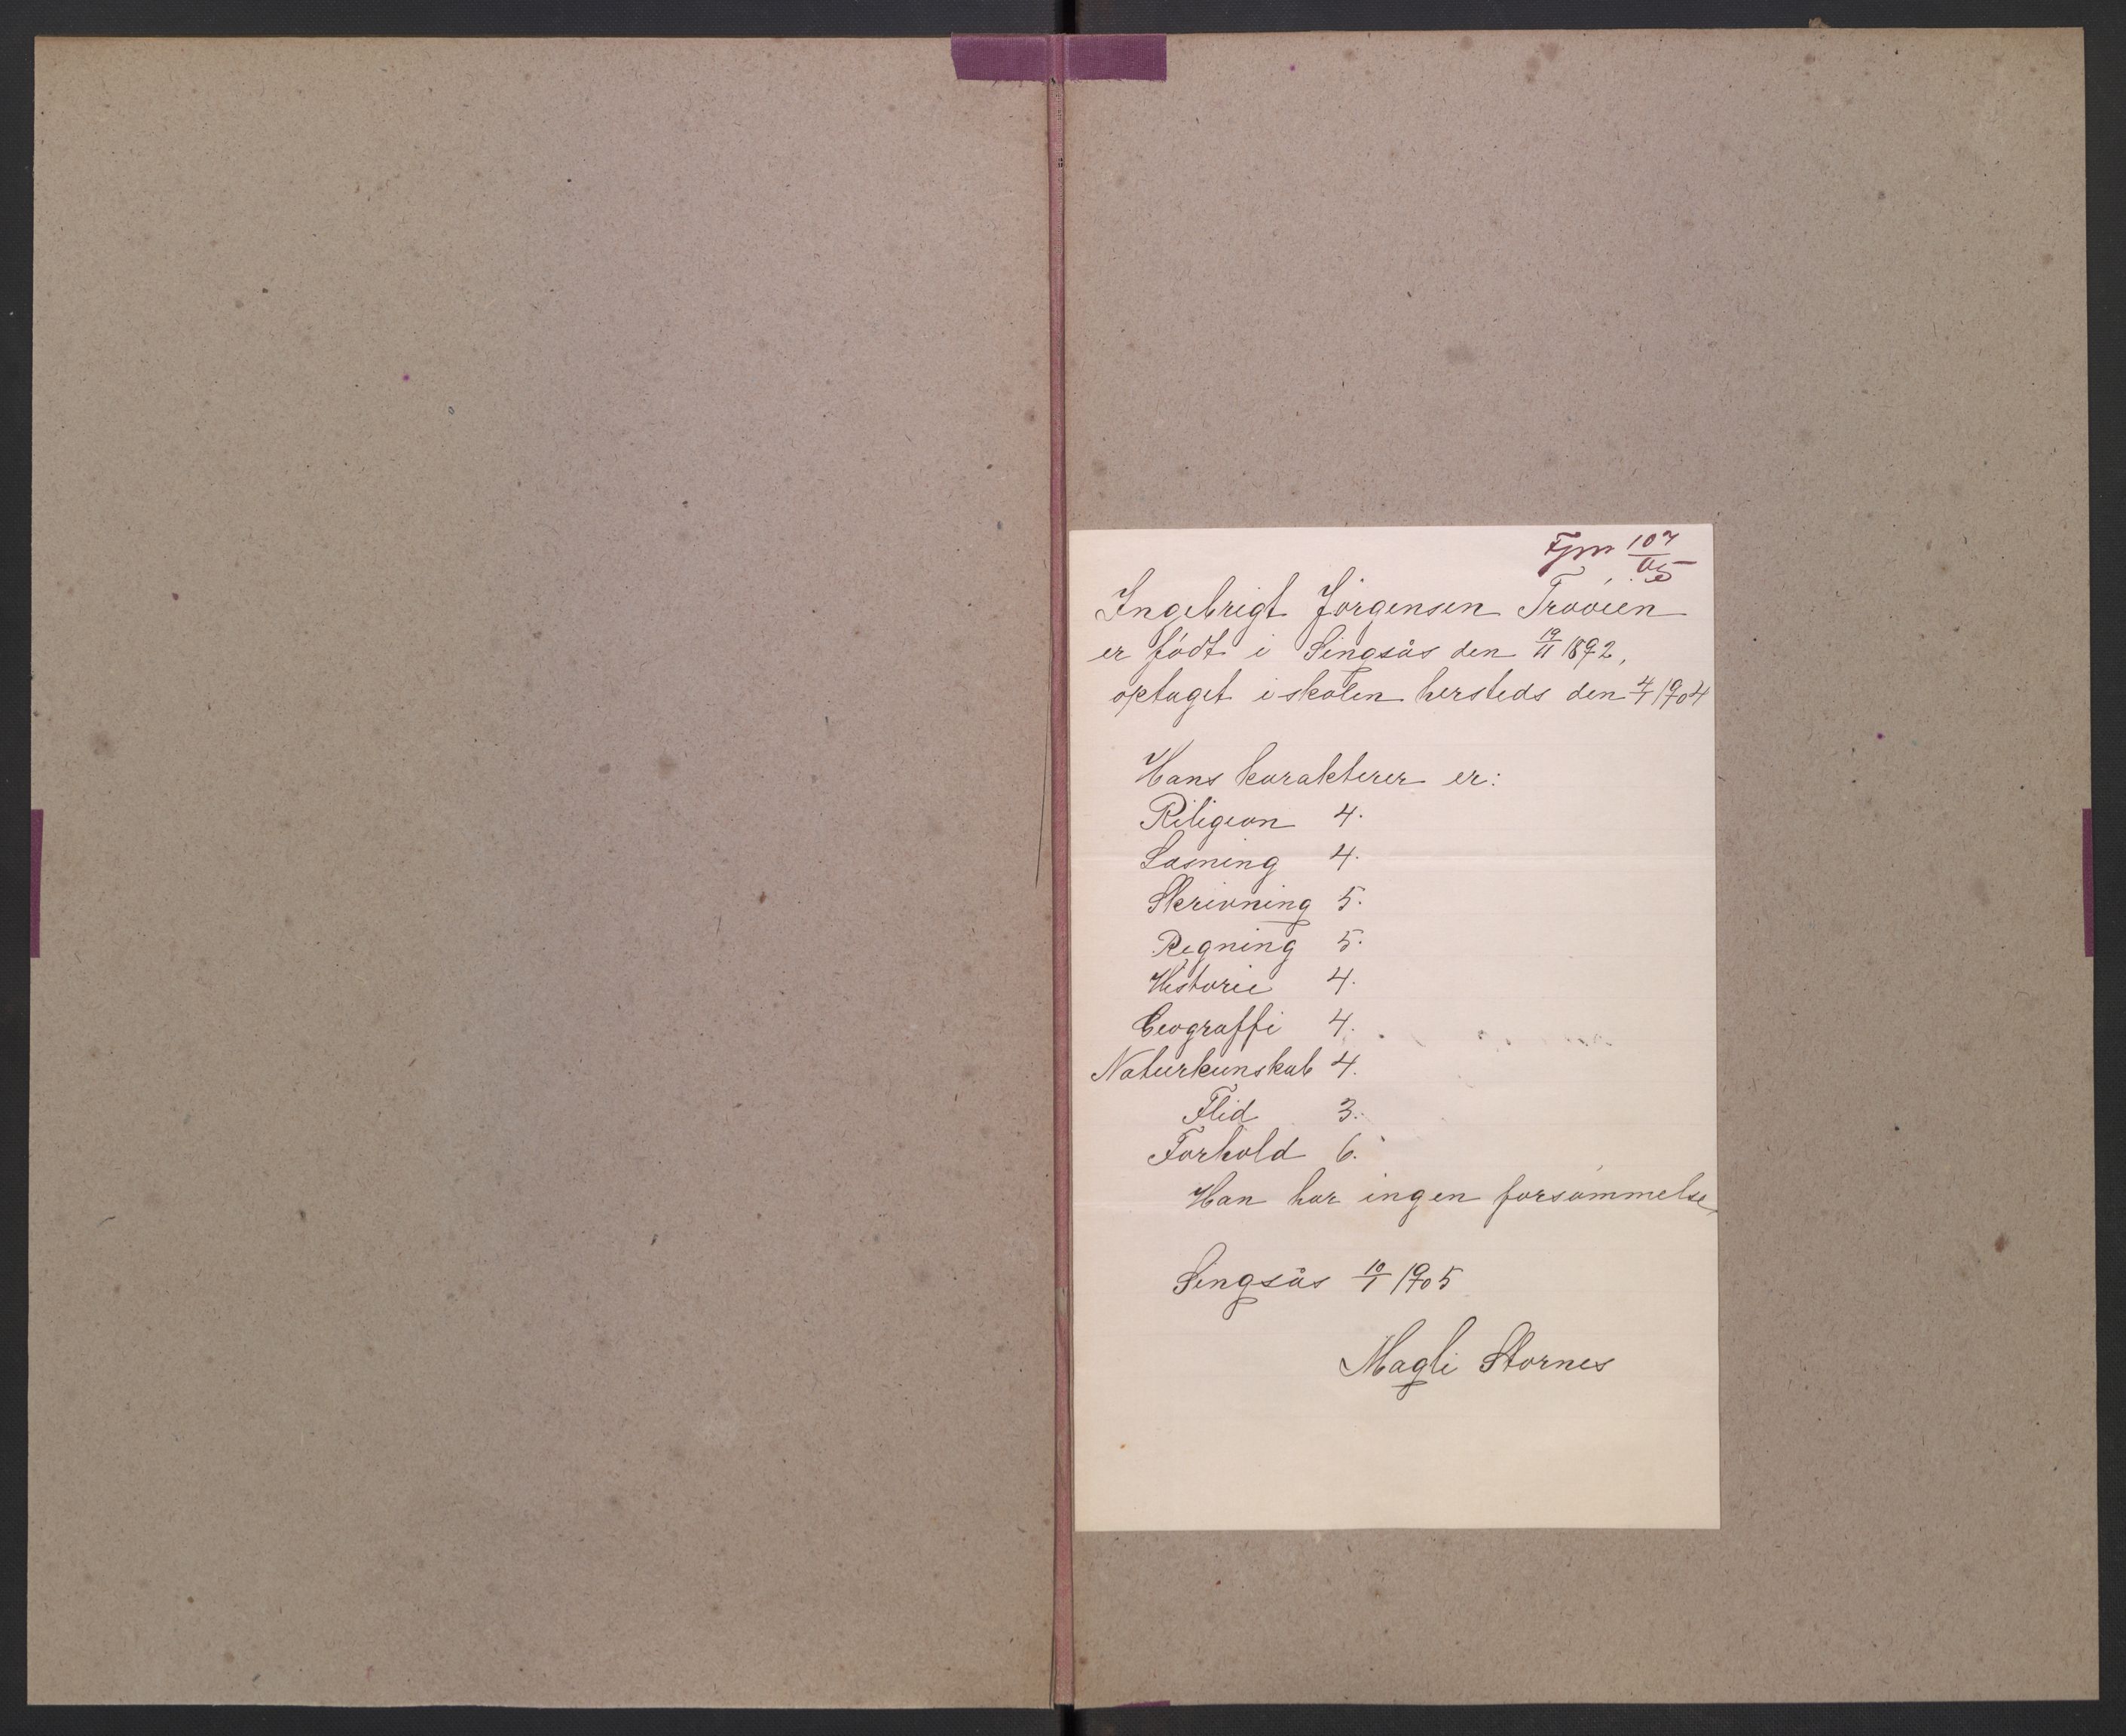 Fjm 107/05
Ingebrigt Jörgensen
er födt i Singsås den 19/11 1892,
optaget i skolen hersteds den 4/1 1904
Hans karakterer er:
Riligeon 4.
Læsning 4.
Skrivning 5.
Regning 5.
Historie 4.
Geograffi 4.
Naturkunskab 4.
Flid 3.
Forhold 6.
Han har ingen forsömmelse,
Singsås 10/1 1905
Magli Stornes